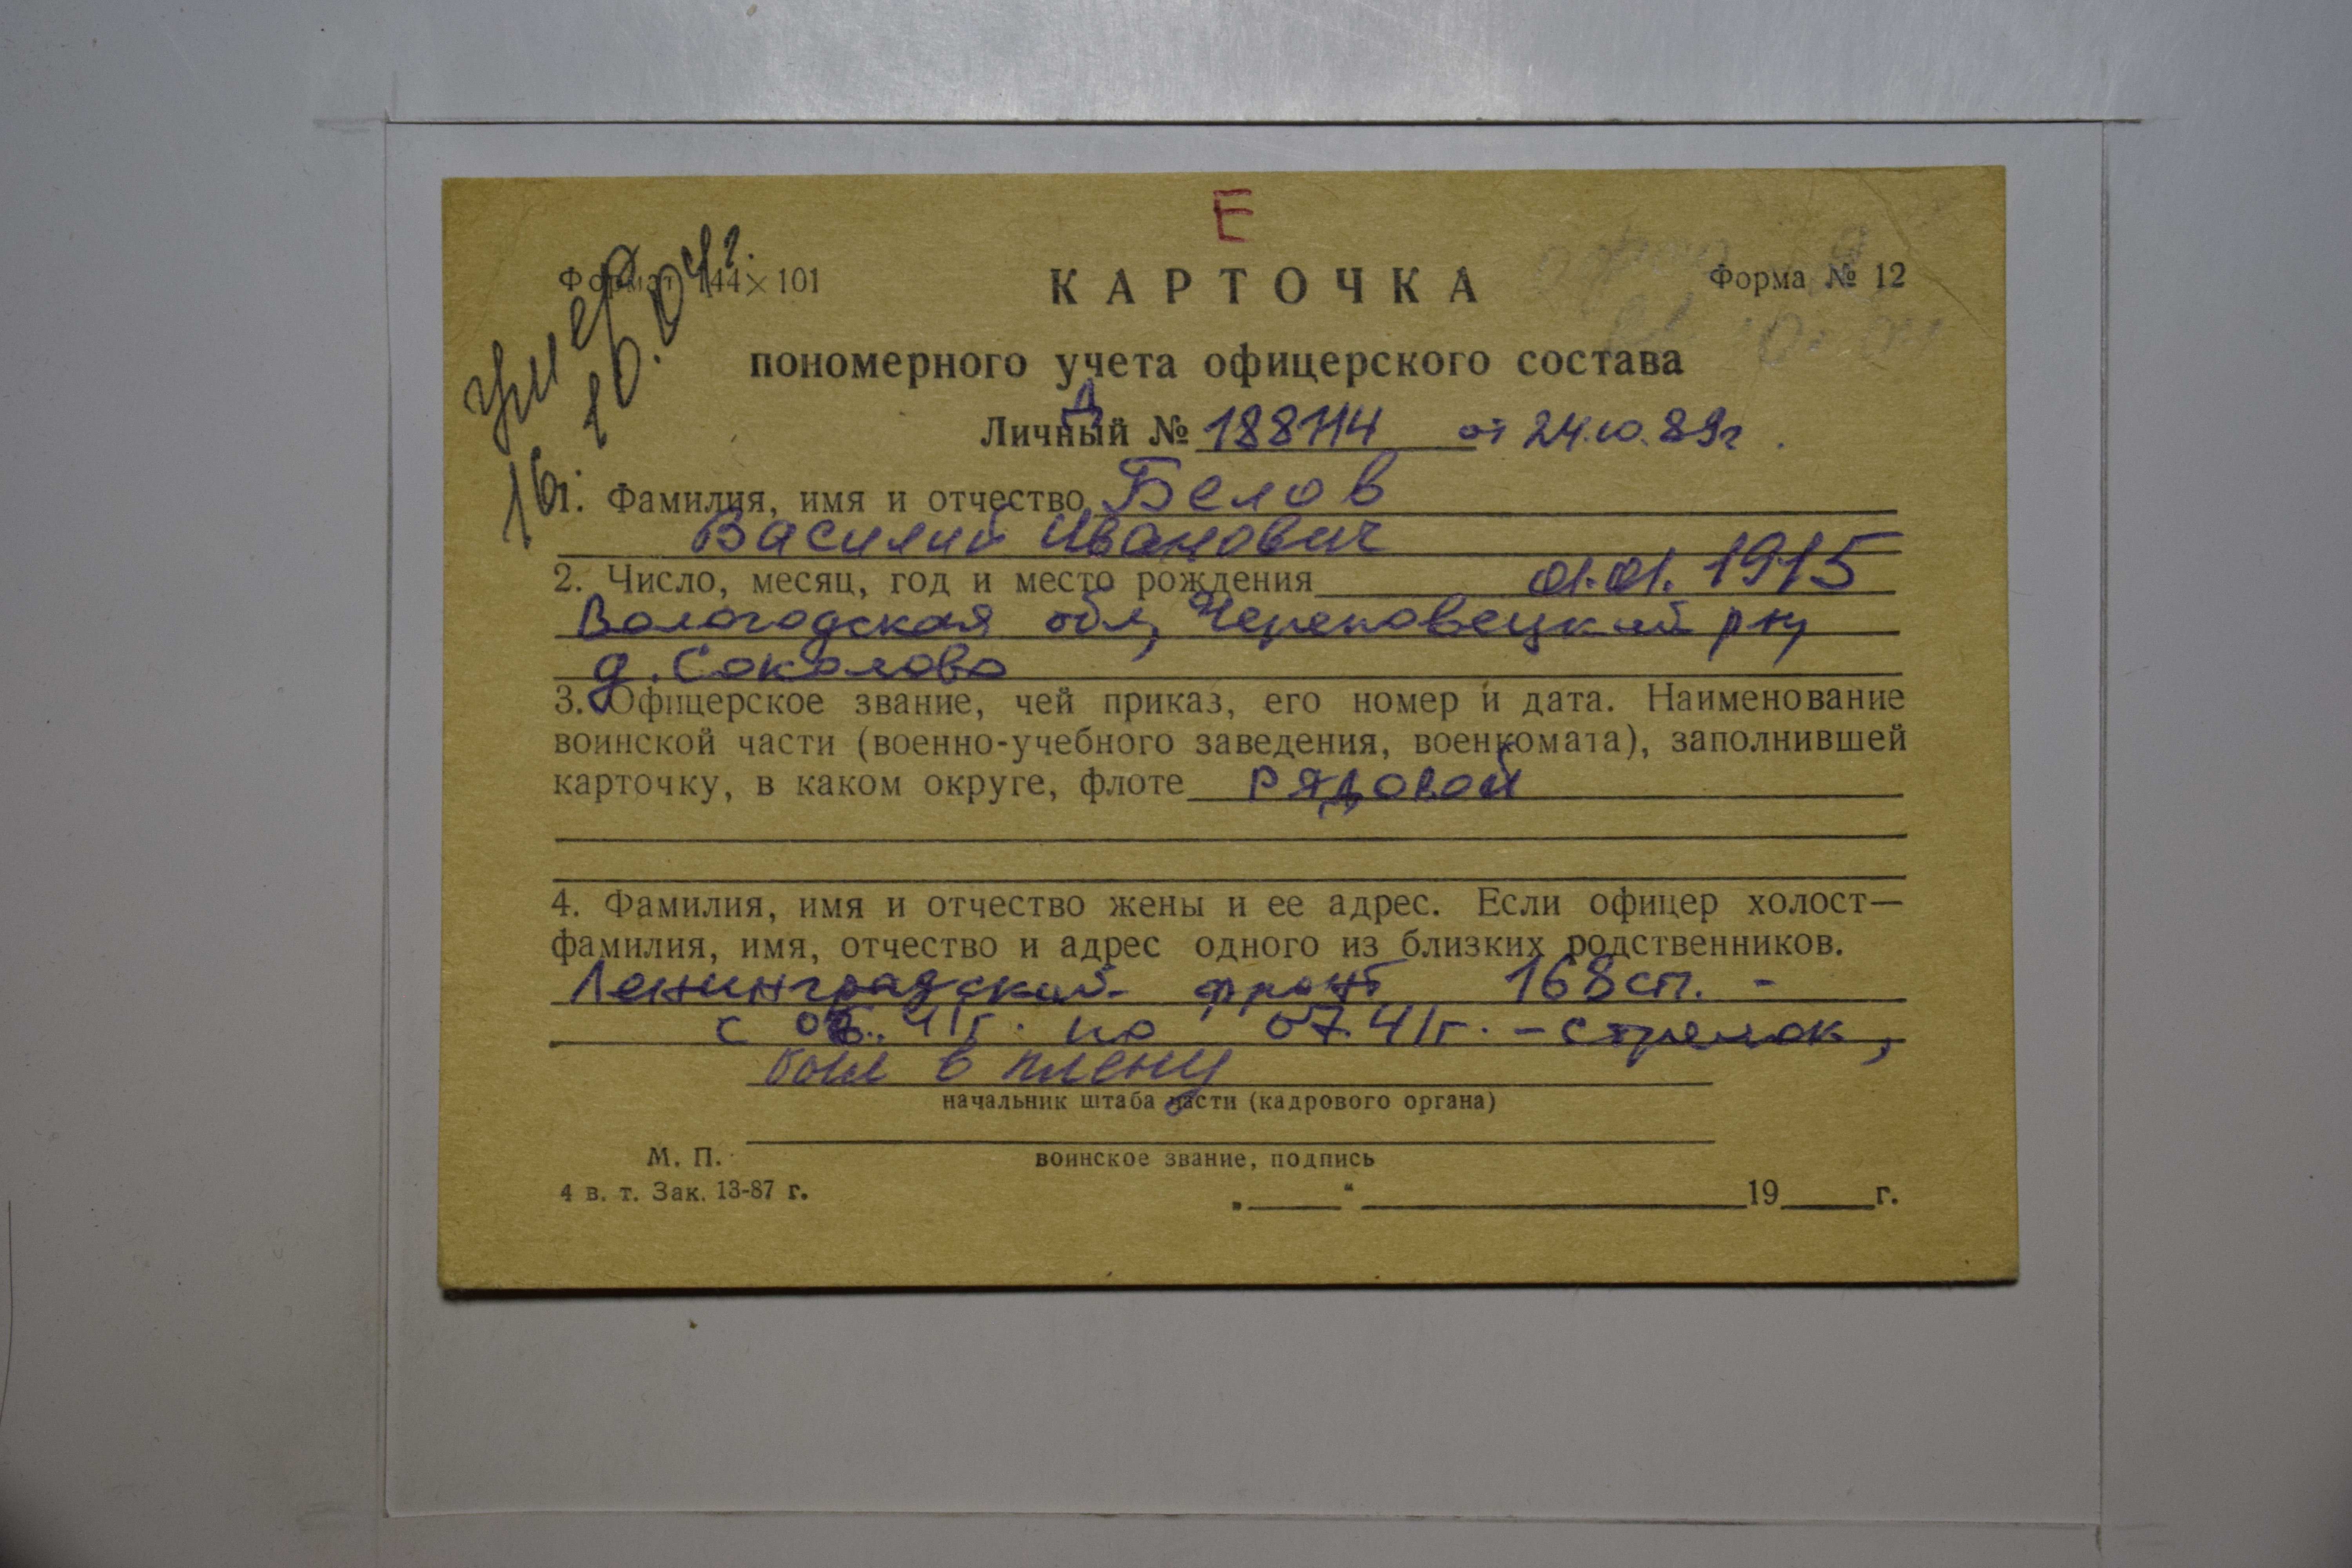 Е
умер
16. 10.04г.
Формат 144×101
КАРТОЧКА
Форма № 12
пономерного учета офицерского состава
Д
Личный № 188114 от 24.10.89г.
1. Фамилия, имя и отчество Белов
Василий Иванович
2. Число, месяц, год и место рождения 01.01.1915
Вологодская обл, Череповецкий р-н,
д. Соколово
3. Офицерское звание, чей приказ, его номер и дата. Наименование
воинской части (военно-учебного заведения, военкомата), заполнившей
карточку, в каком округе, флоте рядовой
4. Фамилия, имя и отчество жены и ее адрес. Если офицер холост—
фамилия, имя, отчество и адрес одного из близких родственников.
Ленинградский фронт 168 сп. -
с 06.41г. по 07.41г. - стрелок,
был в плену
начальник штаба части (кадрового органа)
М. П.
воинское звание, подпись
4 в. т. Зак. 13-87 г.
„ “ 19 г.